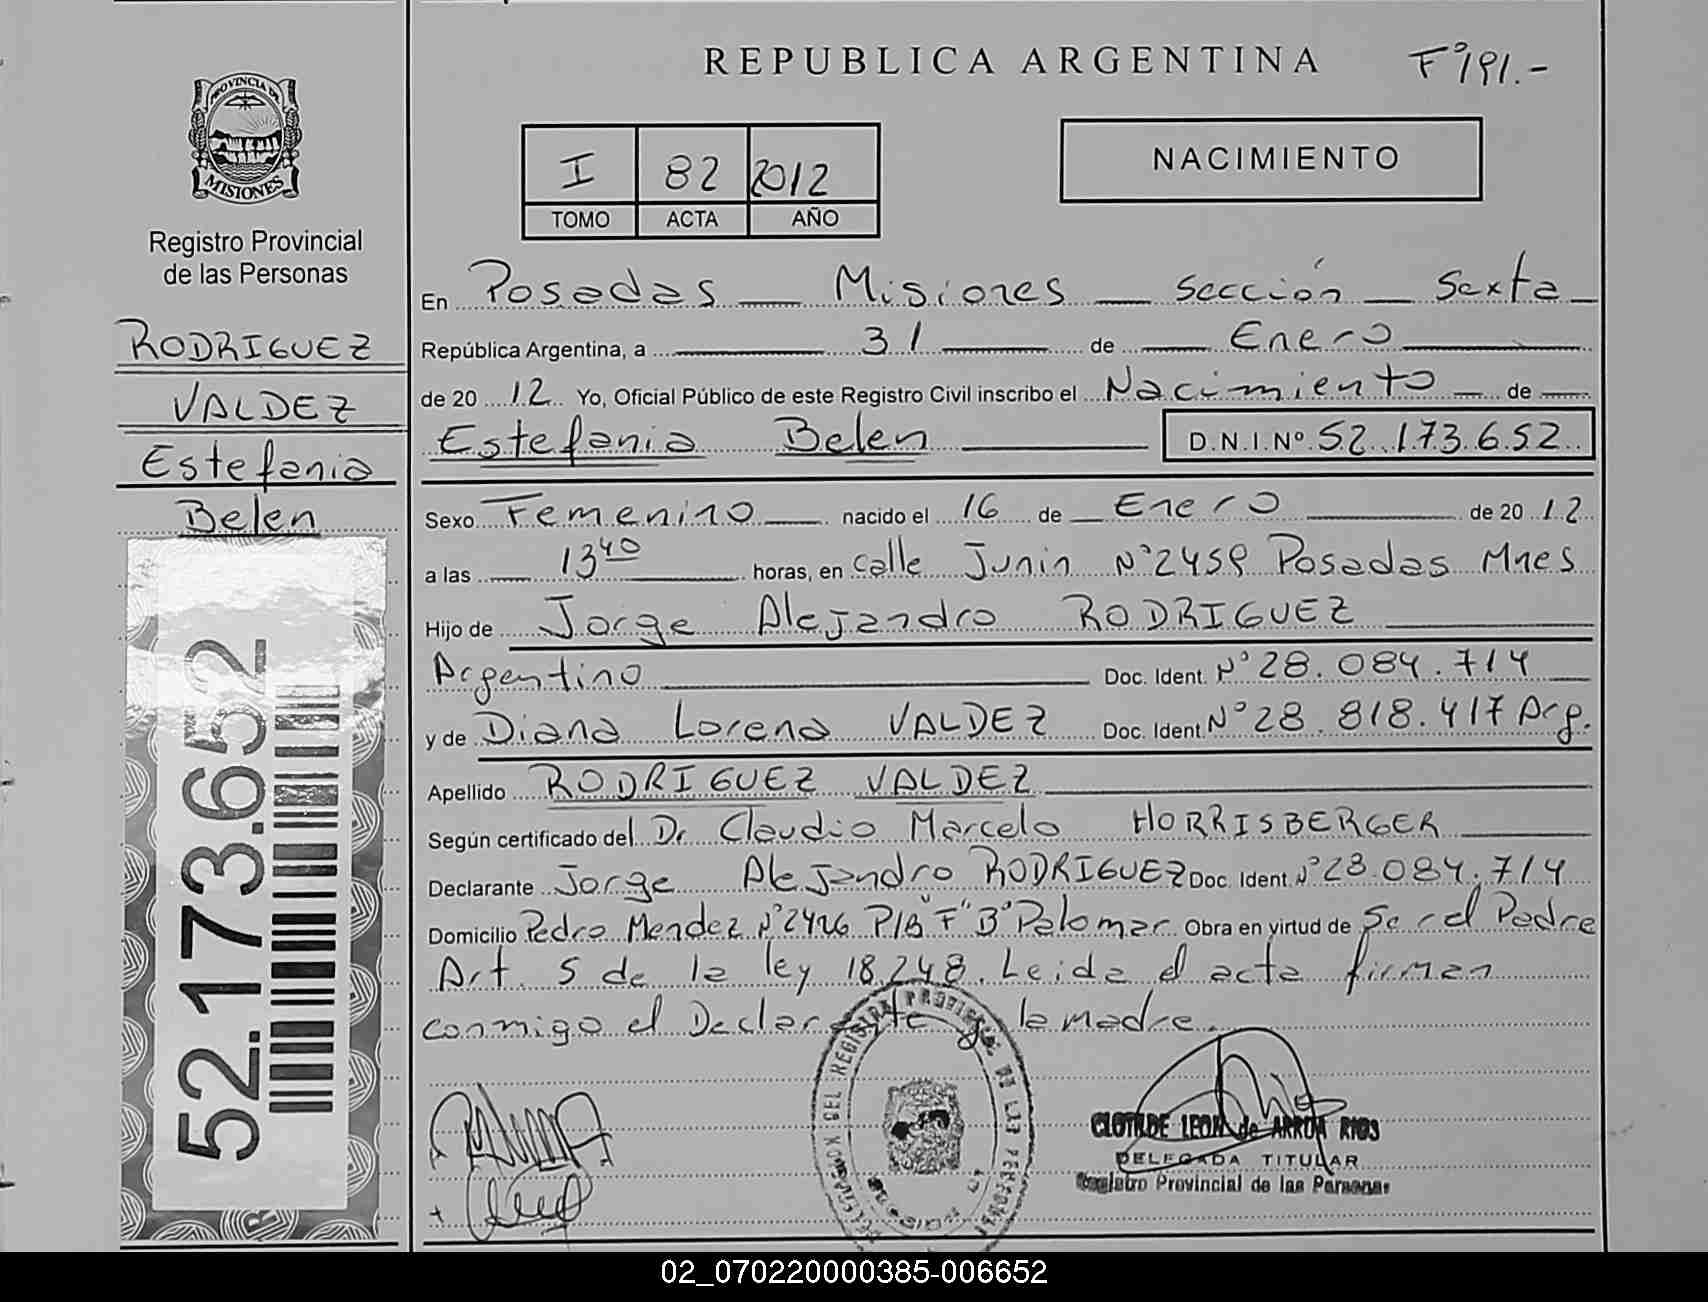 REPUBLICA ARGENTINA
Fº 191.-
PROVINCIA DE
MISIONES
Registro Provincial
de las Personas
I 82 2012
TOMO ACTA AÑO
NACIMIENTO
RODRIGUEZ
VALDEZ
Estefania
Belen
52.173.652
En Posadas Misiones sección Sexta
República Argentina, a 31 de Enero
de 2012 Yo, Oficial Público de este Registro Civil inscribo el Nacimiento de
Estefania Belen D.N.I.Nº 52.173.652
Sexo Femenino nacido el 16 de Enero de 2012
a las 13 40 horas, en calle Junin Nº 2459 Posadas Mnes
Hijo de Jorge Alejandro RODRIGUEZ
Argentino Doc. Ident. Nº 28.084.714
y de Diana Lorena VALDEZ Doc. Ident. Nº 28.818.417 Arg.
Apellido RODRIGUEZ VALDEZ
Según certificado del Dr Claudio Marcelo HORRISBERGER
Declarante Jorge Alejandro RODRIGUEZ Doc. Ident. Nº 28.084.714
Domicilio Pedro Mendez Nº 2426 P/B "F" Bº Palomar Obra en virtud de Ser el Padre
Art. 5 de la ley 18.248. Leida el acta firman
conmigo el Declarante y la madre.
CLOTILDE LEON de ARRUA RIOS
DELEGADA TITULAR
Registro Provincial de las Personas
02_070220000385-006652